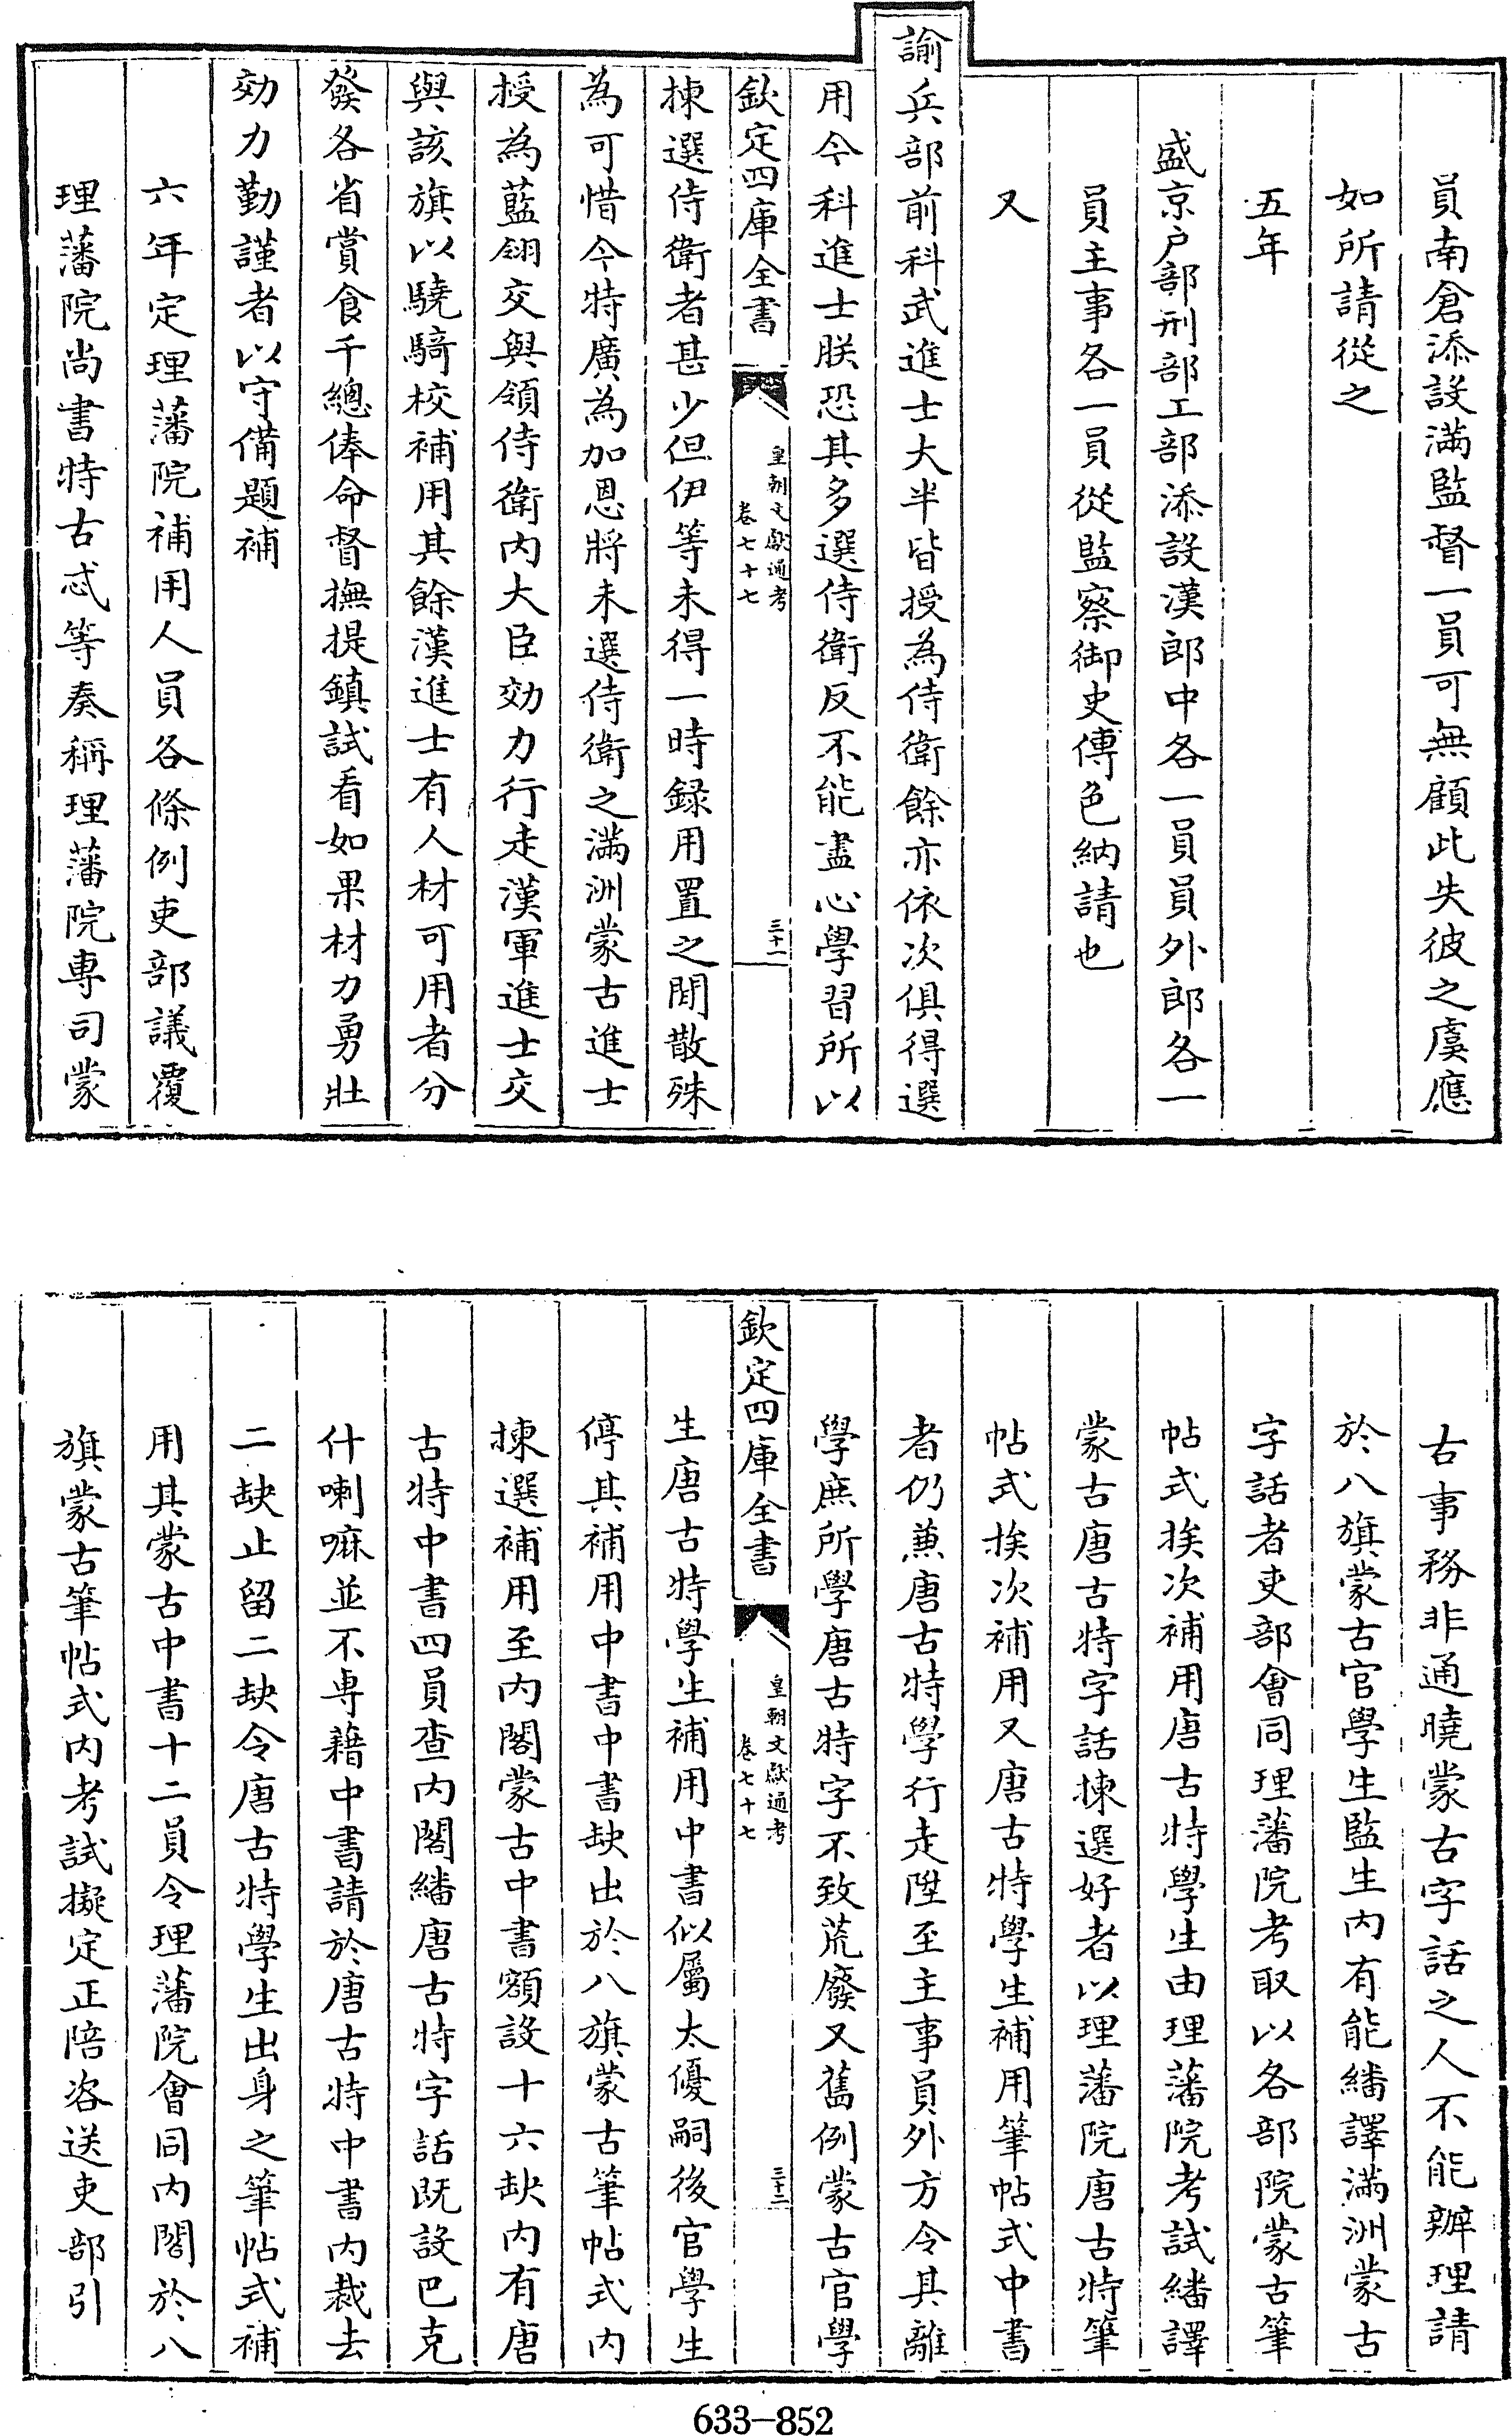 員南倉添設滿監督一員可無顧此失彼之虞應
如所請從之
五年
盛京户部刑部工部添設漢郎中各一員員外郎各一
員主事各一員從監察御史傅色納請也
又
諭兵部前科武進士大半皆授為侍衛餘亦依次俱得選
用今科進士朕恐其多選侍衛反不能盡心學習所以
欽定四庫全書
皇朝文獻通考
卷七十七
三十一
揀選侍衛者甚少但伊等未得一時録用置之閒散殊
為可惜今特廣為加恩將未選侍衛之滿洲蒙古進士
授為藍翎交與領侍衛内大臣効力行走漢軍進士交
與該旗以驍騎校補用其餘漢進士有人材可用者分
發各省賞食千總俸命督撫提鎮試看如果材力勇壯
効力勤謹者以守備題補
六年定理藩院補用人員各條例吏部議覆
理藩院尚書特古忒等奏稱理藩院専司蒙
古事務非通曉蒙古字話之人不能辦理請
於八旗蒙古官學生監生内有能繙譯滿洲蒙古
字話者吏部會同理藩院考取以各部院蒙古筆
帖式挨次補用唐古特學生由理藩院考試繙譯
蒙古唐古特字話揀選好者以理藩院唐古特筆
帖式挨次補用又唐古特學生補用筆帖式中書
者仍兼唐古特學行走陞至主事員外方令其離
學庶所學唐古特字不致荒廢又舊例蒙古官學
欽定四庫全書
皇朝文獻通考
卷七十七
三十二
生唐古特學生補用中書似屬太優嗣後官學生
停其補用中書中書缺出於八旗蒙古筆帖式内
揀選補用至内閣蒙古中書額設十六缺内有唐
古特中書四員查内閣繙唐古特字話既設巴克
什喇嘛並不専藉中書請於唐古特中書内裁去
二缺止留二缺令唐古特學生出身之筆帖式補
用其蒙古中書十二員令理藩院會同内閣於八
旗蒙古筆帖式内考試擬定正陪咨送吏部引
633-852